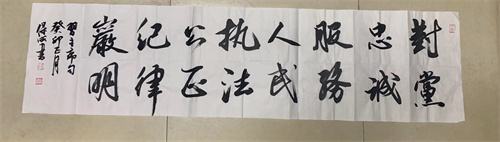 對黨
忠誠
服務
人民
执法
公正
纪律
嚴明
習主席句
癸卯正月